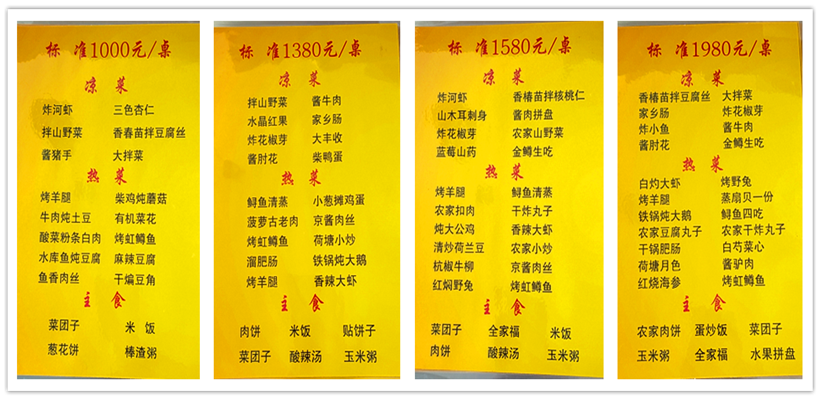 标 准1000元/桌
凉 菜
炸河虾 三色杏仁
拌山野菜 香春苗拌豆腐丝
酱猪手 大拌菜
热 菜
烤羊腿 柴鸡炖蘑菇
牛肉炖土豆 有机菜花
酸菜粉条白肉 烤虹鳟鱼
水库鱼炖豆腐 麻辣豆腐
鱼香肉丝 干煸豆角
主 食
菜团子 米 饭
葱花饼 棒渣粥
标 准1380元/桌
凉 菜
拌山野菜 酱牛肉
水晶红果 家乡肠
炸花椒芽 大丰收
酱肘花 柴鸭蛋
热 菜
鲟鱼清蒸 小葱摊鸡蛋
菠萝古老肉 京酱肉丝
烤虹鳟鱼 荷塘小炒
溜肥肠 铁锅炖大鹅
烤羊腿 香辣大虾
主 食
肉饼 米饭 贴饼子
菜团子 酸辣汤 玉米粥
标 准1580元/桌
凉 菜
炸河虾 香椿苗拌核桃仁
山木耳刺身 酱肉拼盘
炸花椒芽 农家山野菜
蓝莓山药 金鳟生吃
热 菜
烤羊腿 鲟鱼清蒸
农家扣肉 干炸丸子
炖大公鸡 香辣大虾
清炒荷兰豆 农家小炒
杭椒牛柳 京酱肉丝
红焖野兔 烤虹鳟鱼
主 食
菜团子 全家福 米饭
肉饼 酸辣汤 玉米粥
标 准1980元/桌
凉 菜
香椿苗拌豆腐丝 大拌菜
家乡肠 炸花椒芽
炸小鱼 酱牛肉
酱肘花 金鳟生吃
热 菜
白灼大虾 烤野兔
烤羊腿 蒸扇贝一份
铁锅炖大鹅 鲟鱼四吃
农家豆腐丸子 农家干炸丸子
干锅肥肠 白芍菜心
荷塘月色 酱驴肉
红烧海参 烤虹鳟鱼
主 食
农家肉饼 蛋炒饭 菜团子
玉米粥 全家福 水果拼盘